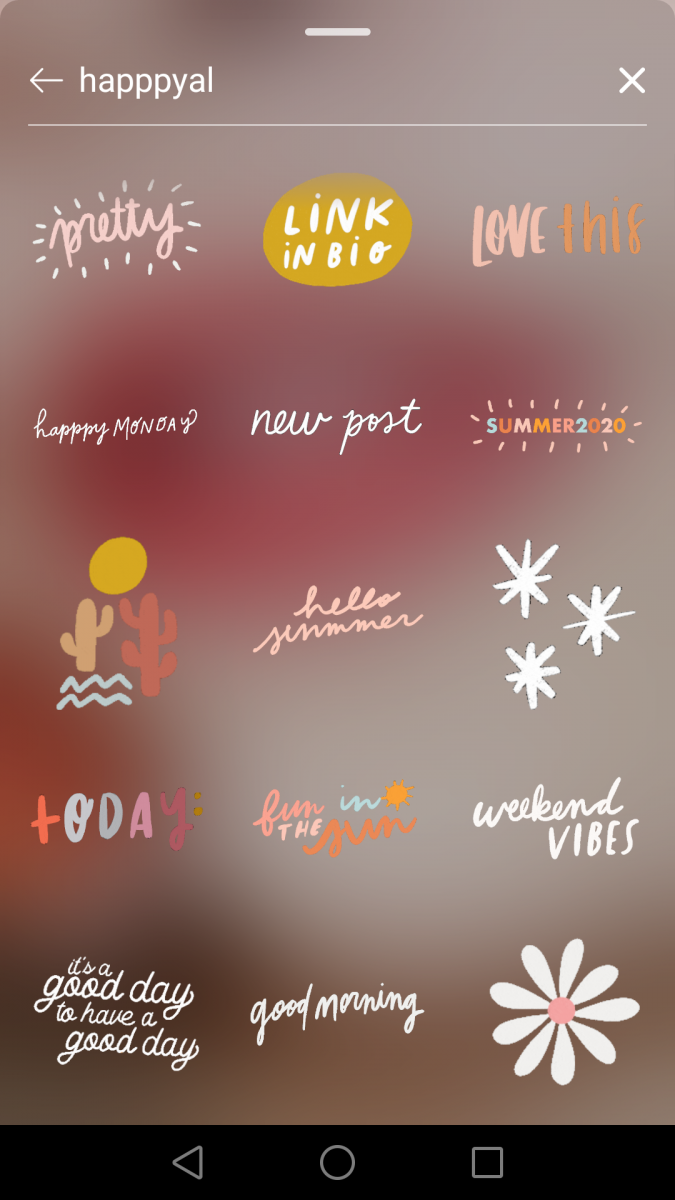 happpyal
pretty
LiNK
iN BiO
LOVE this
happpy MONDAY
new post
SUMMER2020
hello
summer
tODAY:
fun in
THE sun
weekend
VIBES
it's a
good day
to have a
good day
good morning